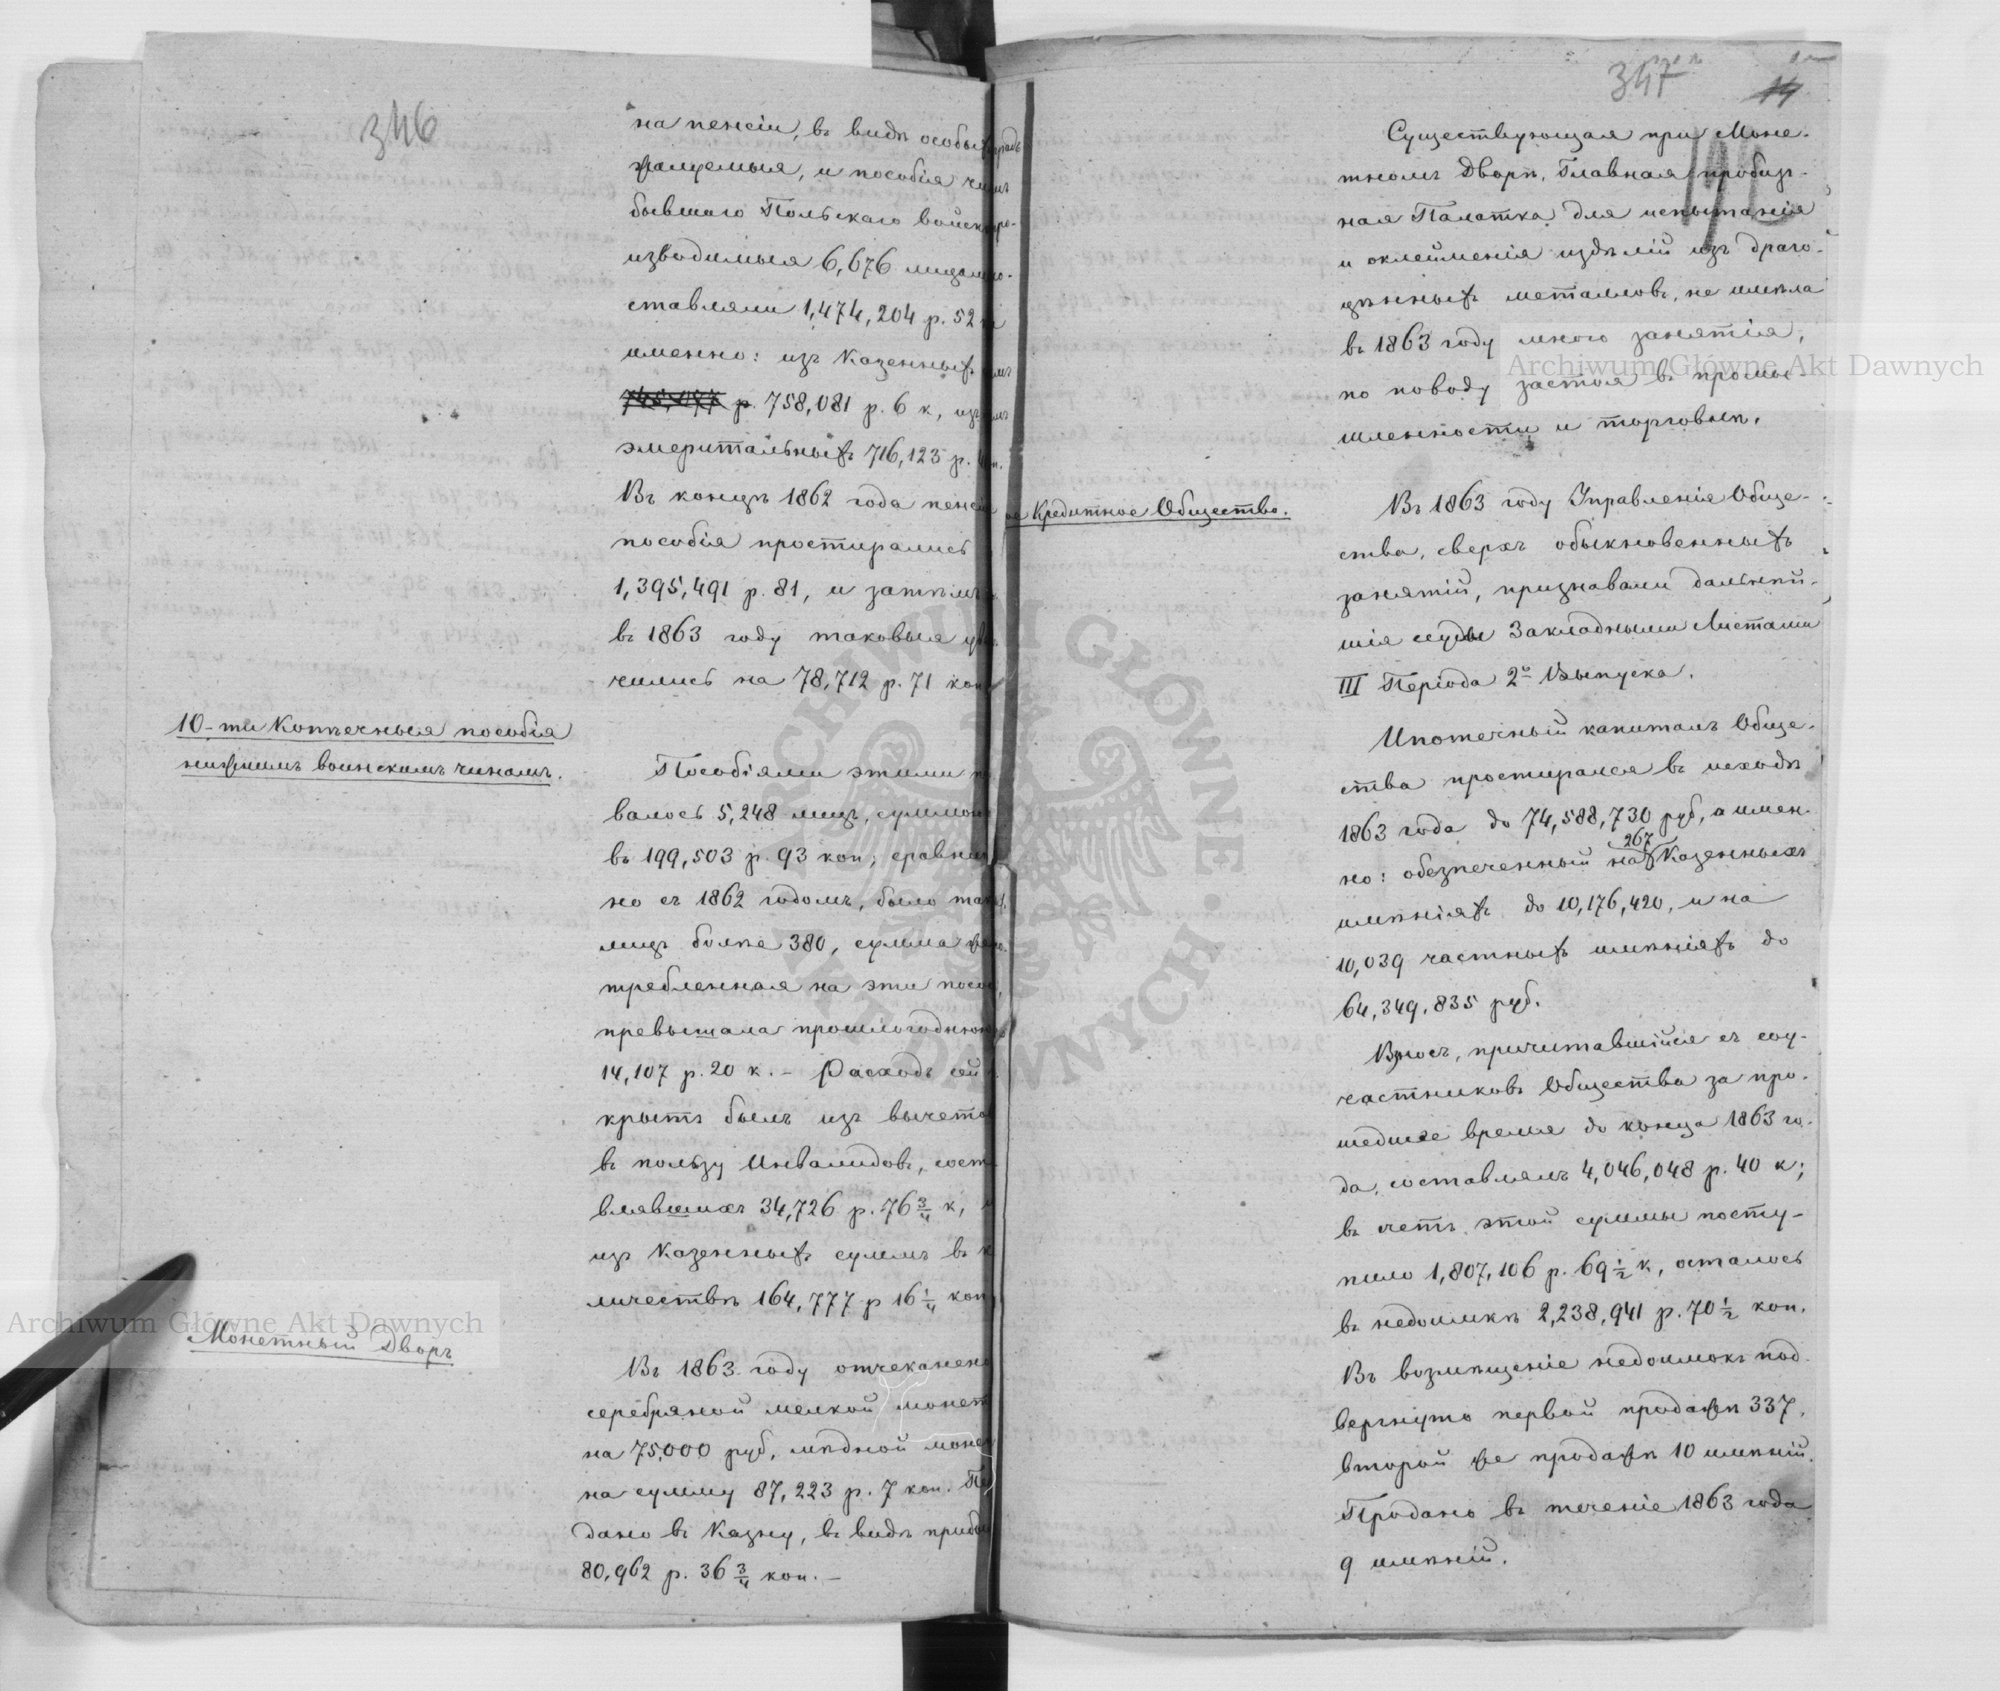 346
на пенсіи, въ видѣ особыхъ
жалуемыя, и пособія
бывшаго Польскаго войска
изводимыя 6,676
ставляли 1,474,204 р. 52
именно: изъ Казенныхъ
р. 758,081 р. 6 к, изъ
эмеритальныхъ 716,123 р.
Въ концѣ 1862 года
пособія простирались
1,395,491 р. 81, и затѣмъ
въ 1863 году таковыя
чились на 78,712 р. 71 коп
10-ти Копѣечныя пособія
нижнимъ воинскимъ чинамъ.
Пособіями этими
валось 5,248 лицъ, суммою
въ 199,503 р. 93 коп; сравни
но съ 1862 годомъ, было
лицъ болѣе 380, сумма
требленная на эти
превышала прошлогоднюю
14,107 р. 20 к. – Расходъ сей
крытъ былъ изъ вычета
въ пользу Инвалидовъ,
влявшихъ 34,726 р. 76 3/4 к,
изъ Казенныхъ суммъ въ
личествѣ 164,777 р 16 1/4 коп
Монетный Дворъ
Въ 1863 году отчеканено
серебряной мелкой монет
на 75,000 руб, мѣдной моне
на сумму 87,223 р. 7 коп. Пе
дано въ Казну, въ видѣ прибы
80,962 р. 36 3/4 коп. –
347
14
Существующая при Моне-
тномъ Дворѣ, Главная пробир-
ная Палатка для испытанія
и оклейменія издѣлій изъ драго-
цѣнныхъ металловъ, не имѣла
въ 1863 году много занятія,
по поводу застоя въ промы-
шленности и торговлѣ.
ое Кредитное Общество.
Въ 1863 году Управленія Обще-
ства, сверхъ обыкновенныхъ
занятій, признавали дальнѣй-
шія ссуды Закладными Листами
III Періода 2º Выпуска.
Ипотечный капиталъ Обще-
ства простирался въ исходѣ
1863 года до 74,588,730 руб, а имен-
267
но: обезпеченный на Казенныхъ
имѣніяхъ до 10,176,420, и на
10,039 частныхъ имѣніяхъ до
64,349,835 руб.
Взносъ, причитавшійся съ соу-
частниковъ Общества за про-
шедшее время до конца 1863 го-
да, составлялъ 4,046,048 р. 40 к;
въ счетъ этой суммы посту-
пило 1,807,106 р. 69 1/2 к, осталось
въ недоимкѣ 2,238,941 р. 70 1/2 коп.
Въ возмѣщеніе недоимокъ под-
вергнуто первой продажѣ 337,
второй же продажѣ 10 имѣній.
Продано въ теченіе 1863 года
9 имѣній.
Archiwum Główne Akt Dawnych
Archiwum Główne Akt Dawnych
ARCHIWUM GŁÓWNE AKT DAWNYCH